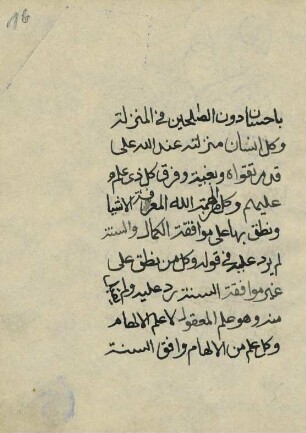 باحسان دون الصلحين في المنزلة
وكل انسان منزلته عند الله على
قدر تقواه ويقينه وفوق كل ذي علم
عليم وكل من الهمه الله المعرفة في الاشيا
ونطق بها على موافقة الكتاب والسنة
لم يرد عليه في قوله وكل من نطق على
غير موافقة السنة رد عليه ولم يقبل
منه وهو علم المعقول لا علم الالهام
وكل علم من الالهام وافق السنة